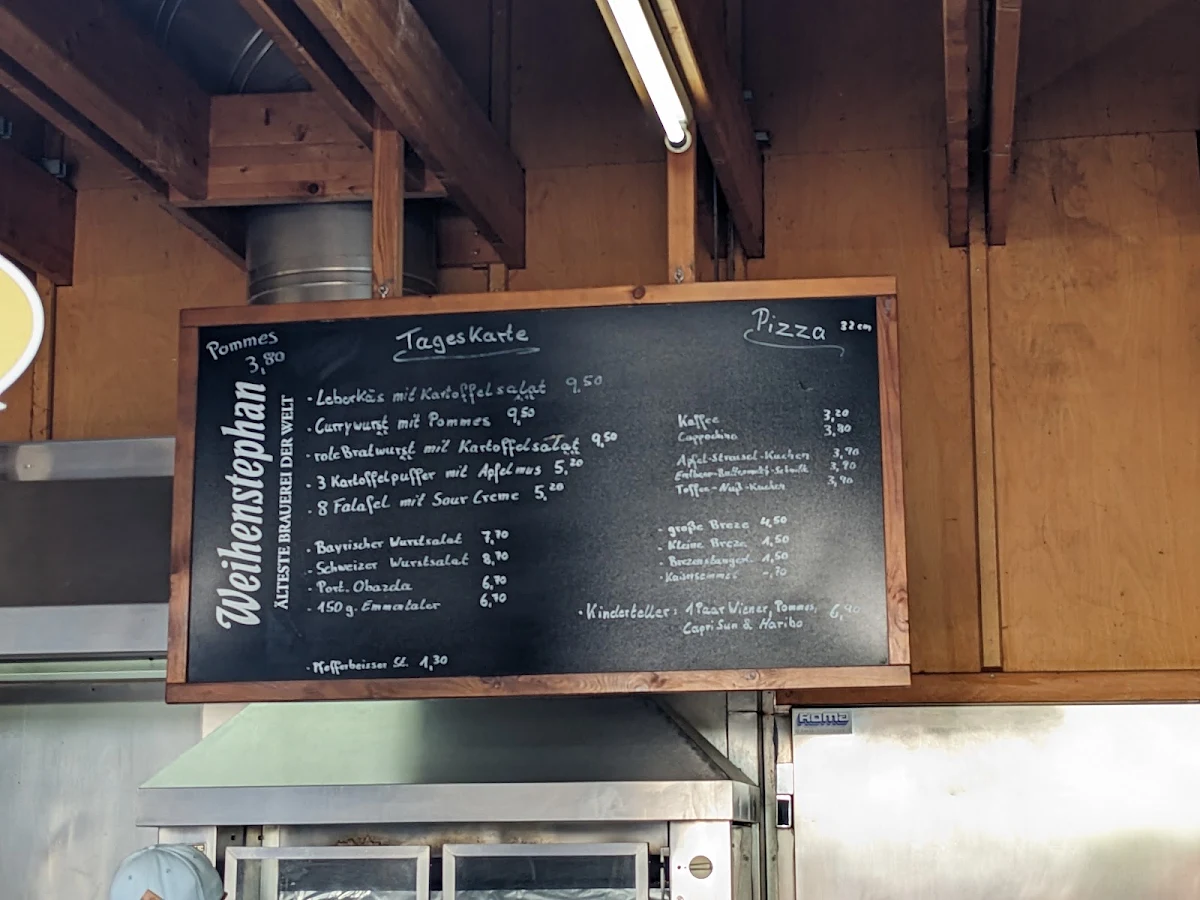 Pommes
3,80
Weihenstephan
ÄLTESTE BRAUEREI DER WELT
TagesKarte
- Leberkäs mit Kartoffelsalat 9,50
- Currywurst mit Pommes 9,50
- rote Bratwurst mit Kartoffelsalat 9,50
- 3 Kartoffelpuffer mit Apfelmus 5,20
- 8 Falafel mit Sour Creme 5,20
- Bayrischer Wurstsalat 7,70
- Schweizer Wurstsalat 8,70
- Port. Obazda 6,70
- 150 g. Emmentaler 6,70
- Pfefferbeisser St. 1,30
Pizza 32 cm
Kaffee 3,20
Cappuchino 3,80
Apfel-Streusel-Kuchen 3,90
3,90
Toffee-Nuß-Kuchen 3,90
- große Breze 4,50
- Kleine Breze 1,50
- Brezenstangerl 1,50
- Kaisersemmel -,70
- Kinderteller: 1 Paar Wiener, Pommes, 6,90
CapriSun & Haribo
Roma